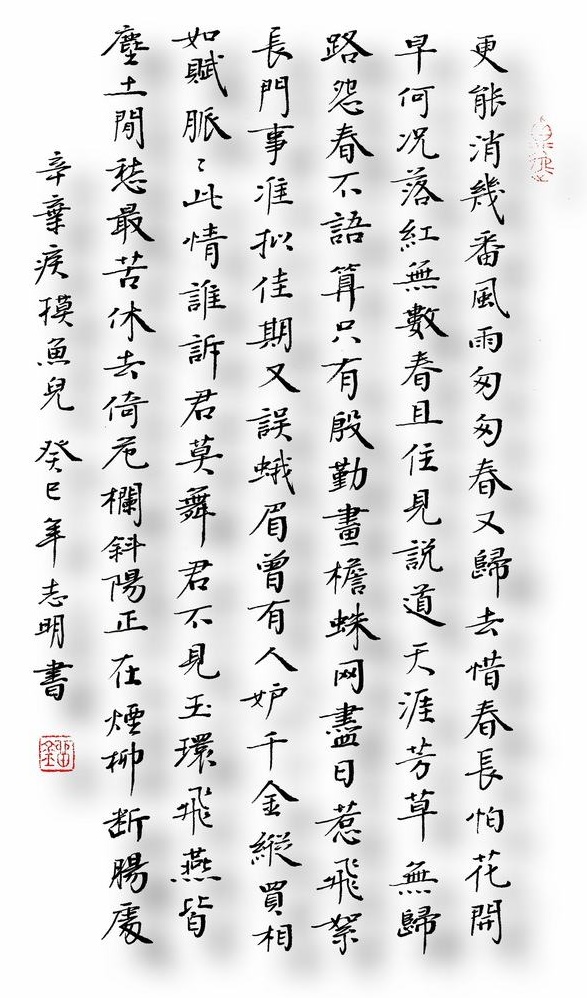 更能消幾番風雨匆匆春又歸去惜春長怕花開
早何況落紅無數春且住見説道天涯芳草無歸
路怨春不語算只有殷勤畫檐蛛网盡日惹飛絮
長門事准拟佳期又誤蛾眉曾有人妒千金縱買相
如賦脈〻此情誰訴君莫舞君不見玉環飛燕皆
塵土閒愁最苦休去倚危欄斜陽正在煙柳斷腸處
辛棄疾摸魚兒 癸巳年志明書